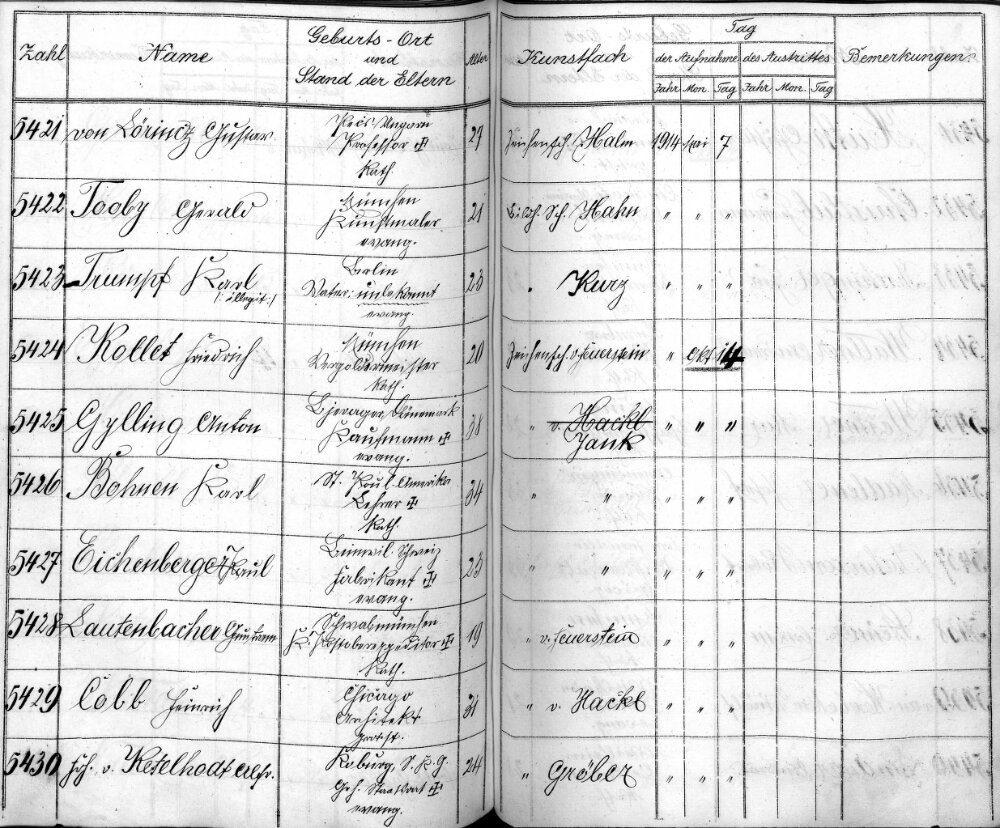 Zahl Name Geburts-Ort und Stand der Eltern Alter Kunstfach Tag der Aufnahme des Austrittes Bemerkungen
Jahr Mon. Tag Jahr Mon. Tag
5421 von Lörintz Gustav Ungarn 27 Zeichensch. Halm 1914 Mai 7
Professor ✠
Kath.
5422 Tooby Gerald München 21 Bildh. Sch. Hahn " " "
Kunstmaler
evang.
5423 Trumpf Karl Berlin 23 " Kurz " " "
/: illegit :/ Vater: unbekannt
evang.
5424 Kollet Friedrich München 20 Zeichensch. v. Feuerstein " Okt 14
Vergoldermeister
Kath.
5425 Gylling Anton Bjerager Dänemark 38 " v. Hackl " " "
Kaufmann ✠ Jank
evang.
5426 Bohnen Karl St. Paul Amerika 34 " " " " "
Lehrer ✠
Kath.
5427 Eichenberger Paul Beinwil Schweiz 23 " " " " "
Fabrikant ✠
evang.
5428 Lautenbacher Gustav Schwabmünchen 19 " v. Feuerstein " " "
K. Postoberexpeditor ✠
Kath.
5429 Cobb Heinrich Chicago 31 " v. Hackl " " "
Architekt
prot.
5430 Frh. v. Ketelhodt Alfr. Koburg S. K. G. 24 " Gröber " " "
Geh. Staatsrat ✠
evang.